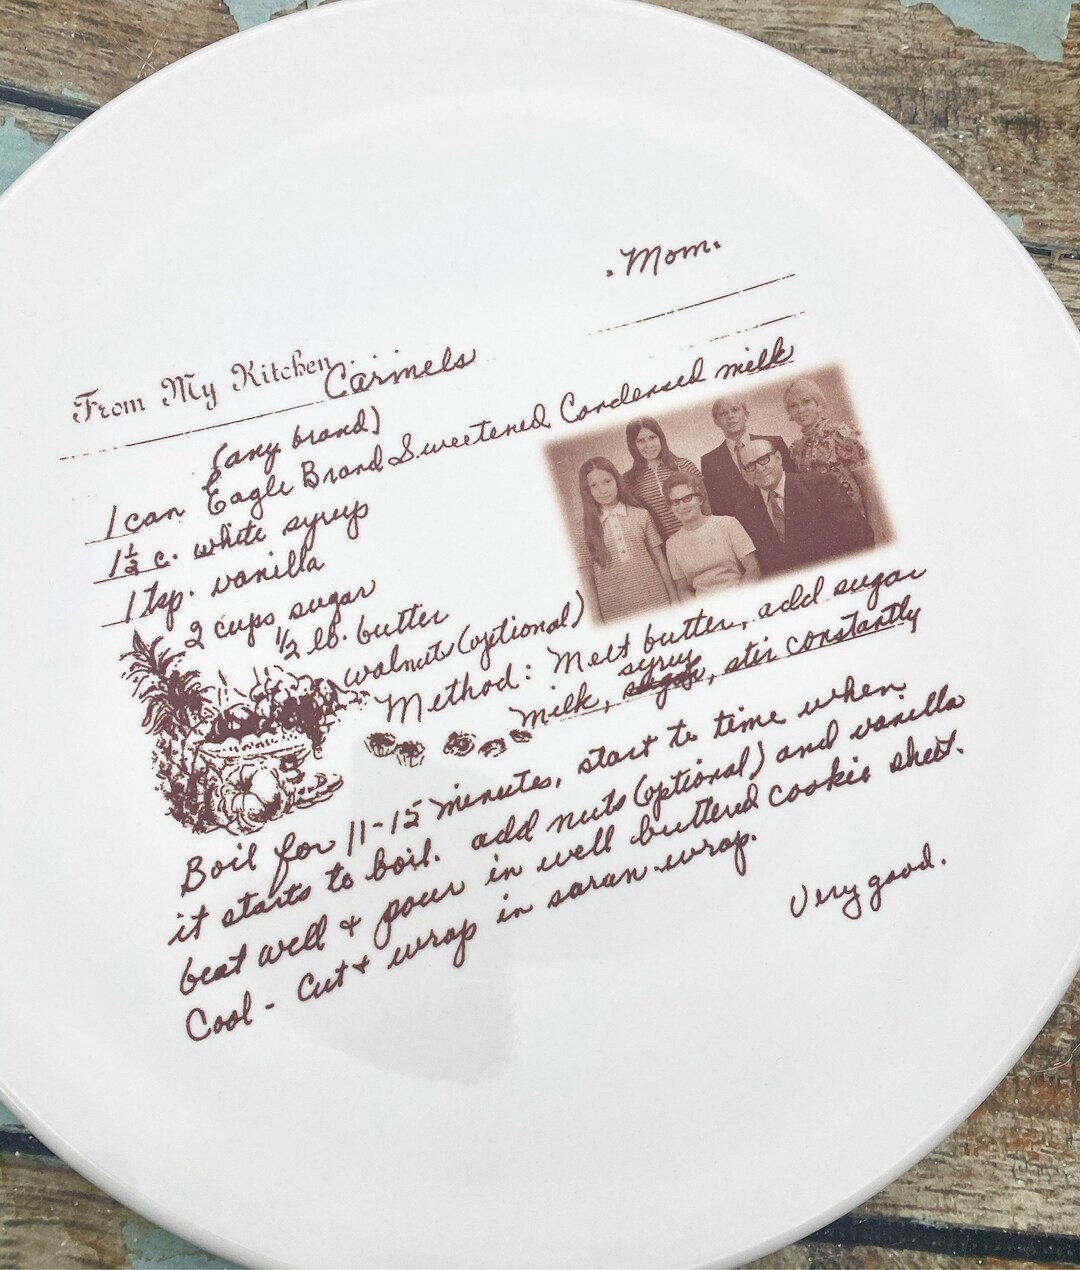 .Mom.
From My Kitchen Carmels
(any brand)
1 can Eagle Brand Sweetened Condensed milk
1½ c. white syrup
1 tsp. vanilla
2 cups sugar
½ lb. butter
walnuts (optional)
Method: Melt butter, add sugar
syrup
milk, sugar, stir constantly
Boil for 11-15 minutes, start to time when
it starts to boil. add nuts (optional) and vanilla
beat well + pour in well buttered cookie sheet.
Cool - Cut + wrap in saran wrap.
Very good.